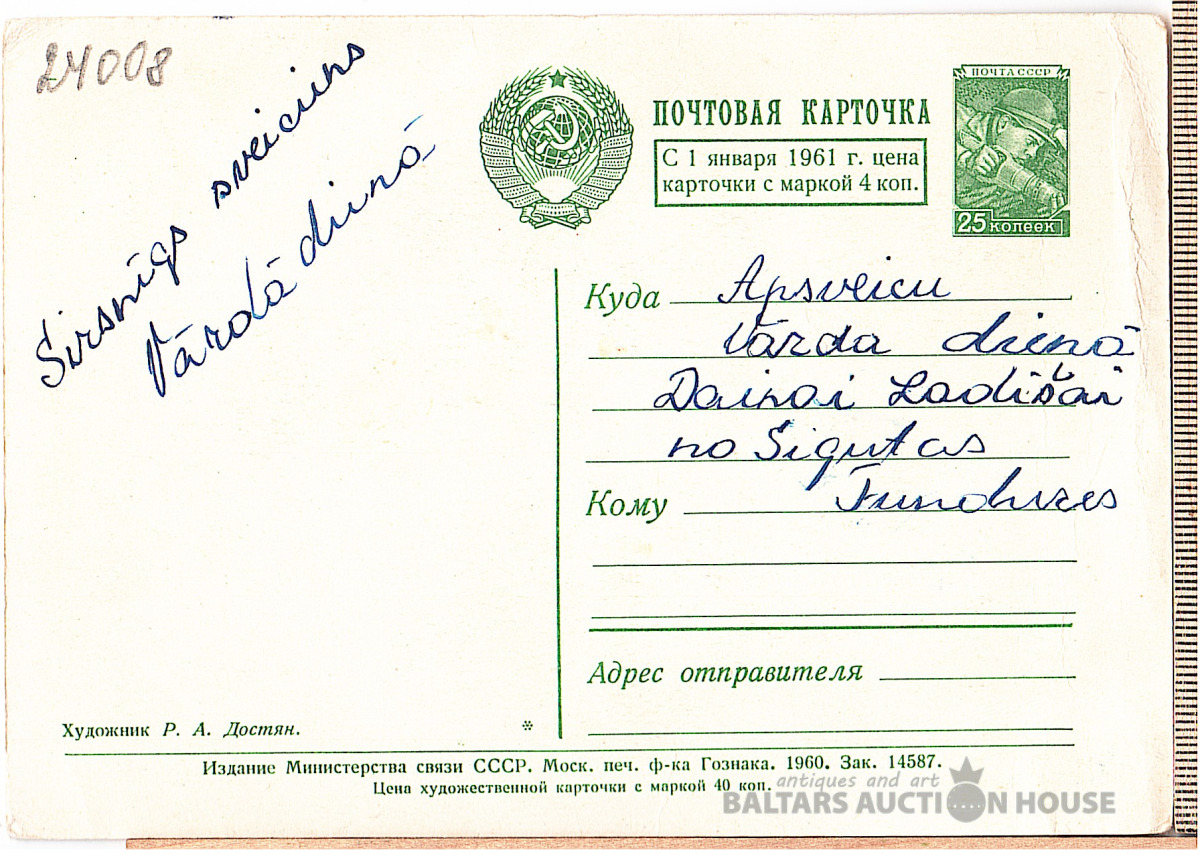 24008
Sirsnīgs sveiciens
Vārdā dienā
ПОЧТОВАЯ КАРТОЧКА
С 1 января 1961 г. цена
карточки с маркой 4 коп.
ПОЧТА СССР
25 копеек
Куда Apsveicu
Vārda dienā
Dainai
no Siguldas
Кому
Адрес отправителя
Художник Р. А. Достян.
*
Издание Министерства связи СССР. Моск. печ. ф-ка Гознака. 1960. Зак. 14587.
Цена художественной карточки с маркой 40 коп.
antiques and art
BALTARS AUCTION HOUSE